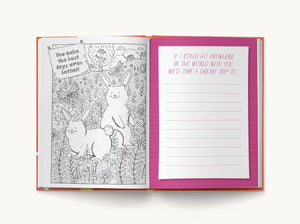 You make
the best
days even
better!
IF I COULD GO ANYWHERE
IN THE WORLD WITH YOU,
WE'D TAKE A DREAM TRIP TO